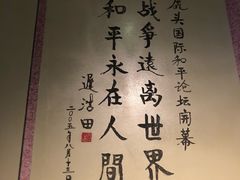 虎头国际和平论坛开幕
战爭遠离世界
和平永在人間
遲浩田
二〇〇五年八月十三日